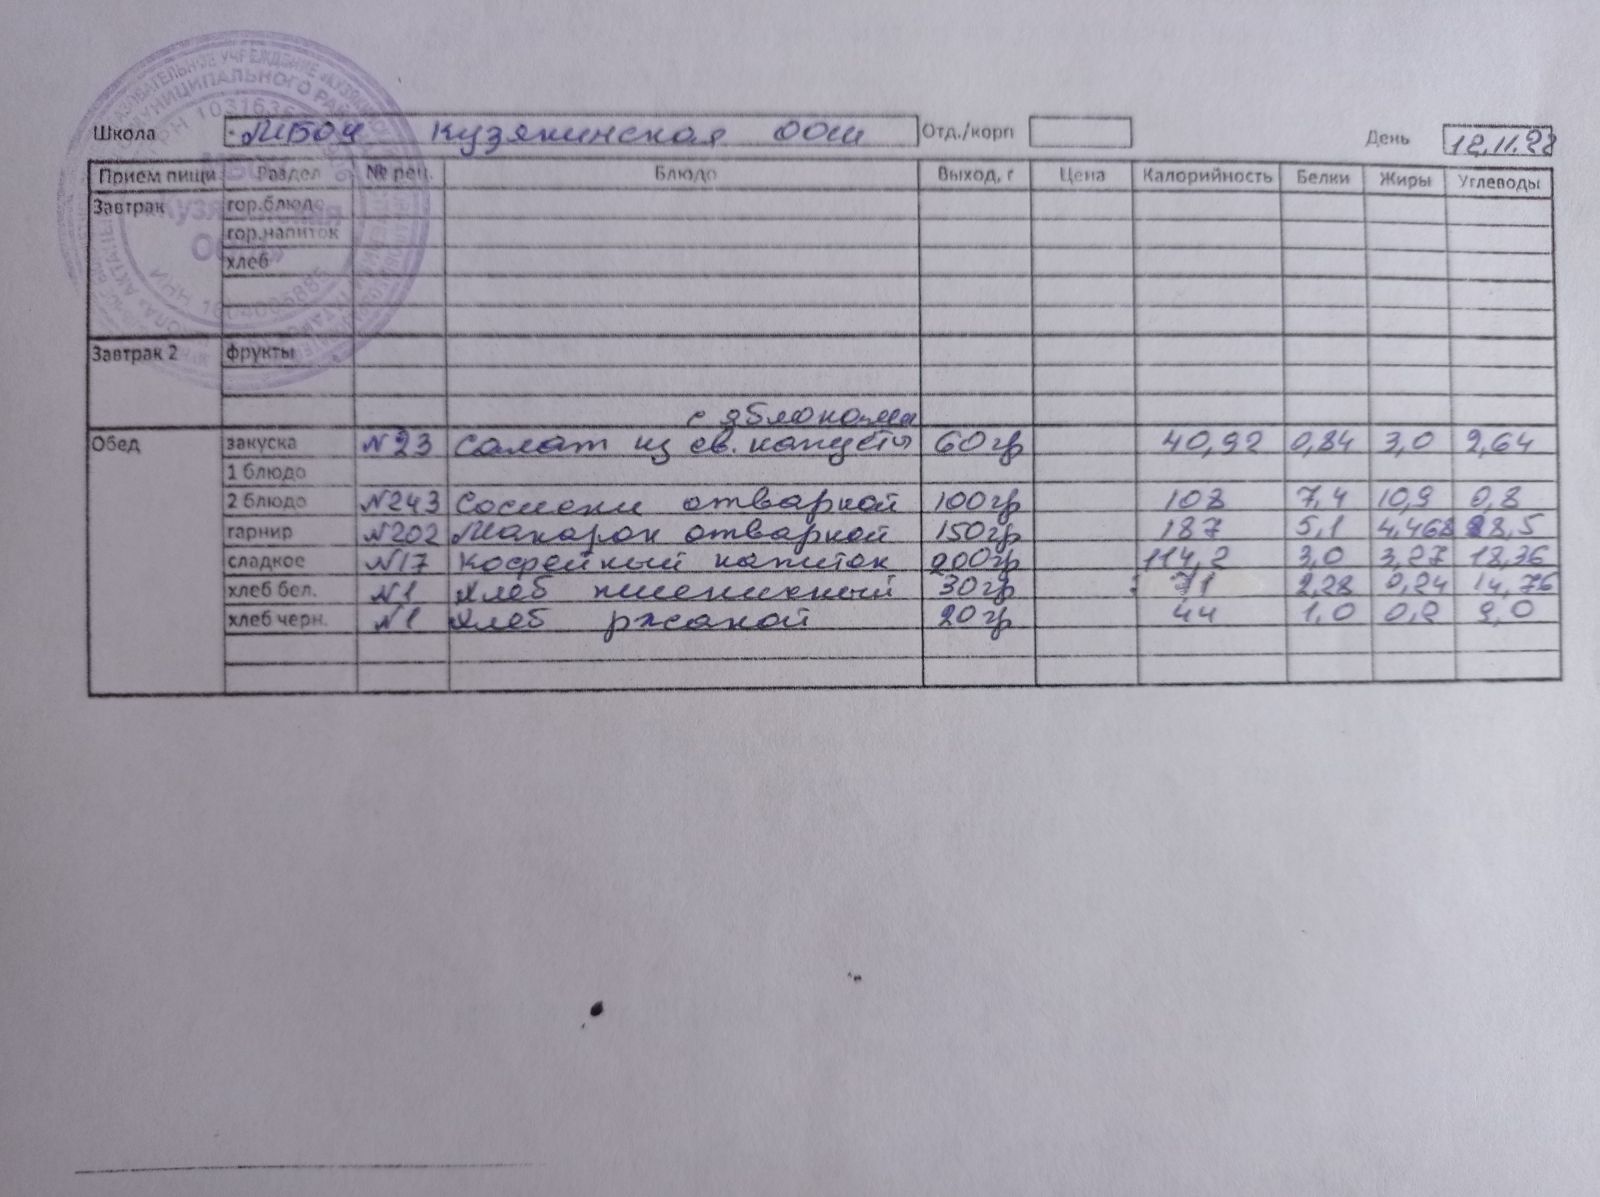 Школа МБОУ Кузякинская ООШ Отд./корп День 12.11.22
Прием пищи Раздел № рец. Блюдо Выход, г Цена Калорийность Белки Жиры Углеводы
Завтрак гор.блюдо
гор.напиток
хлеб
Завтрак 2 фрукты
с яблоками
Обед закуска №23 Салат из св. капусты 60гр 40,92 0,84 3,0 2,64
1 блюдо
2 блюдо №243 Сосиски отварной 100гр 108 7,4 10,9 0,8
гарнир №202 Макарон отварной 150гр 187 5,1 4,468 28,5
сладкое №17 Кофейный напиток 200гр 114,2 3,0 3,27 18,36
хлеб бел. №1 Хлеб пшеничный 30гр 71 2,28 0,24 14,76
хлеб черн. №1 Хлеб ржаной 20гр 44 1,0 0,2 9,0